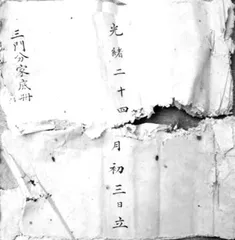 光緒二十四 月初三日立
三門分家底冊